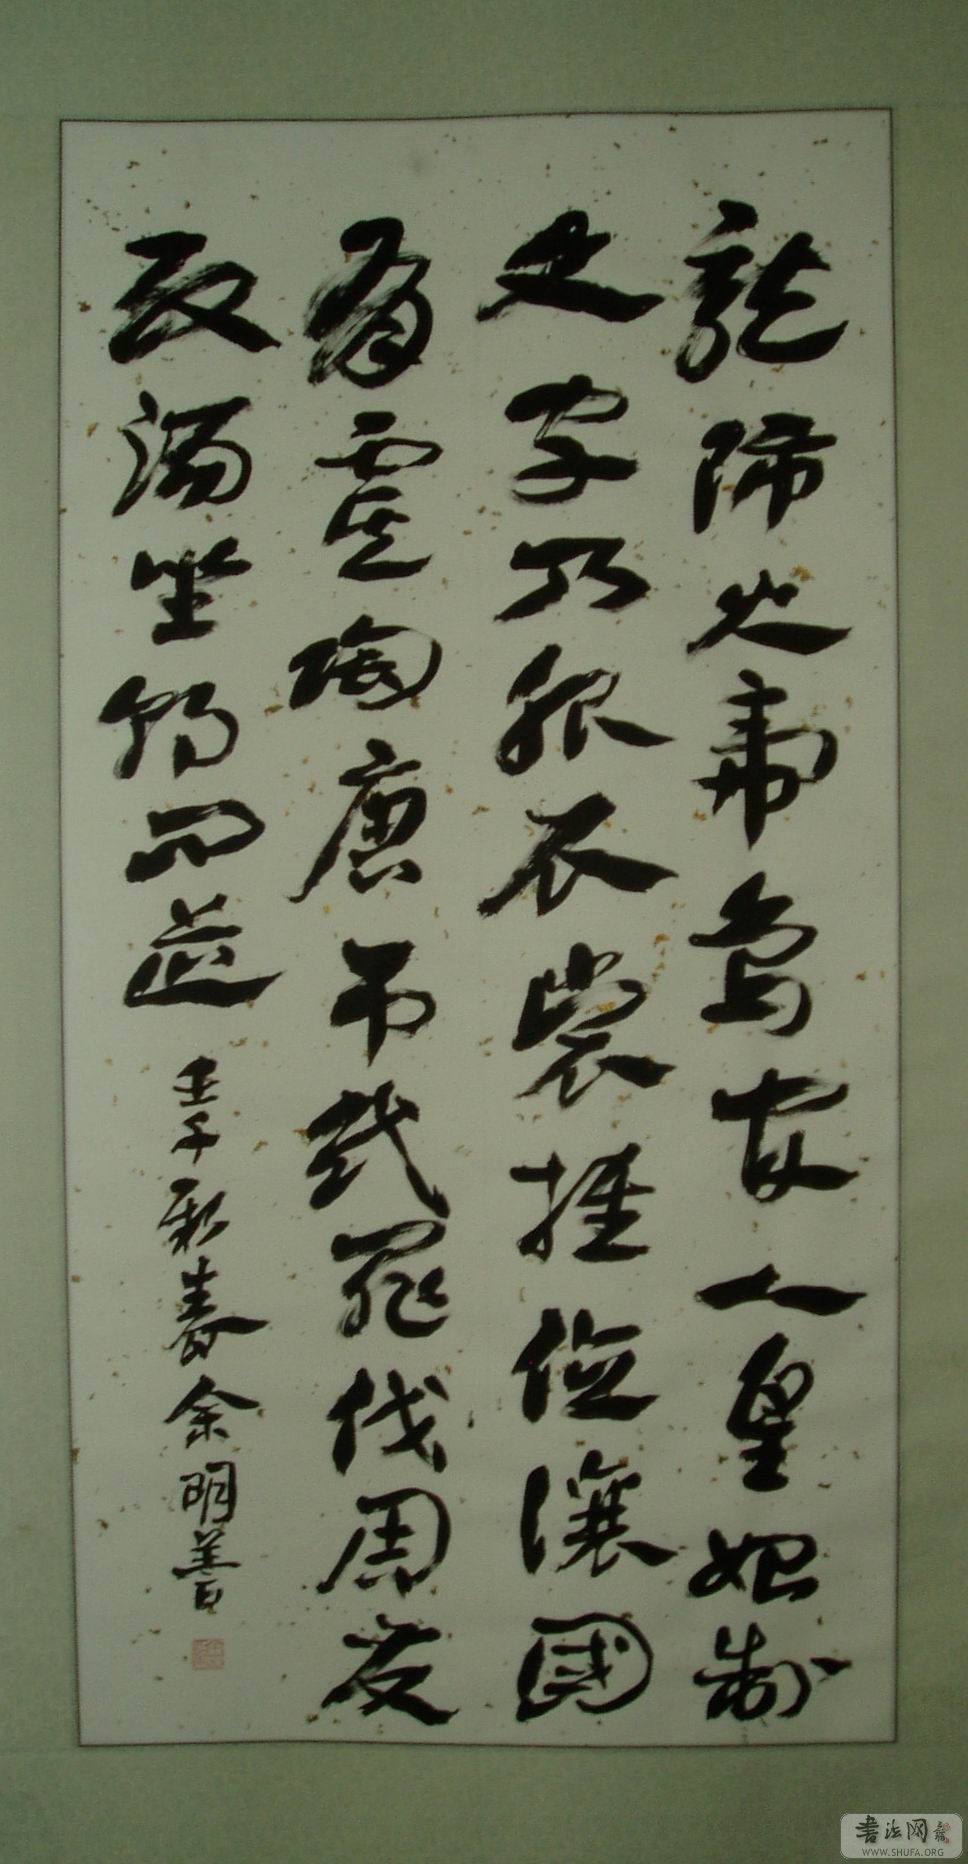 龍師火帝鳥官人皇始制
文字乃服衣裳推位讓國
有虞陶唐吊民罪伐周發
殷湯坐朝問道
壬午新春余明善
書法网
WWW.SHUFA.ORG